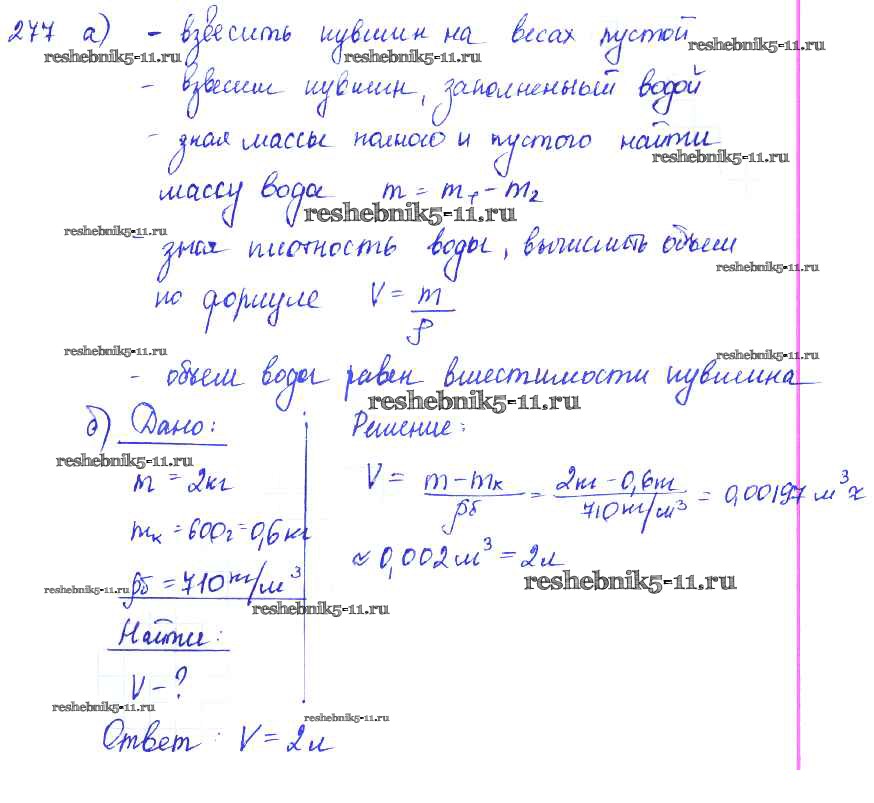 277 а) - взвесить кувшин на весах пустой
reshebnik5-11.ru reshebnik5-11.ru reshebnik5-11.ru
- взвесим кувшин, заполненный водой
- зная массы полного и пустого найти
reshebnik5-11.ru
массу воды m = m₁ - m₂
reshebnik5-11.ru
reshebnik5-11.ru
- зная плотность воды, вычислить объем
reshebnik5-11.ru
по формуле V = m/ρ
reshebnik5-11.ru reshebnik5-11.ru
- объем воды равен вместимости кувшина
reshebnik5-11.ru
б) Дано: Решение:
reshebnik5-11.ru
m = 2кг V = (m - mк)/ρб = (2кг - 0,6кг)/(710 кг/м³) = 0,00197 м³ ≈
mк = 600г = 0,6кг
≈ 0,002 м³ = 2л
reshebnik5-11.ru ρб = 710 кг/м³ reshebnik5-11.ru
reshebnik5-11.ru
Найти:
V - ?
reshebnik5-11.ru
reshebnik5-11.ru
Ответ: V = 2л